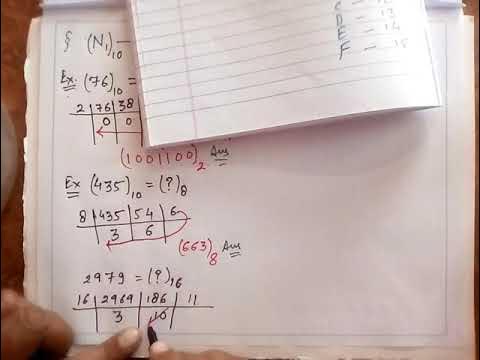 § (N₁)₁₀ —
C
D - 13
E - 14
F - 15
Ex. (76)₁₀ =
2 | 76 | 38
0 | 0
(1001100)₂ Ans
Ex (435)₁₀ = (?)₈
8 | 435 | 54 | 6
3 | 6
(663)₈ Ans
2979 = (?)₁₆
16 | 2969 | 186 | 11
3 | 10